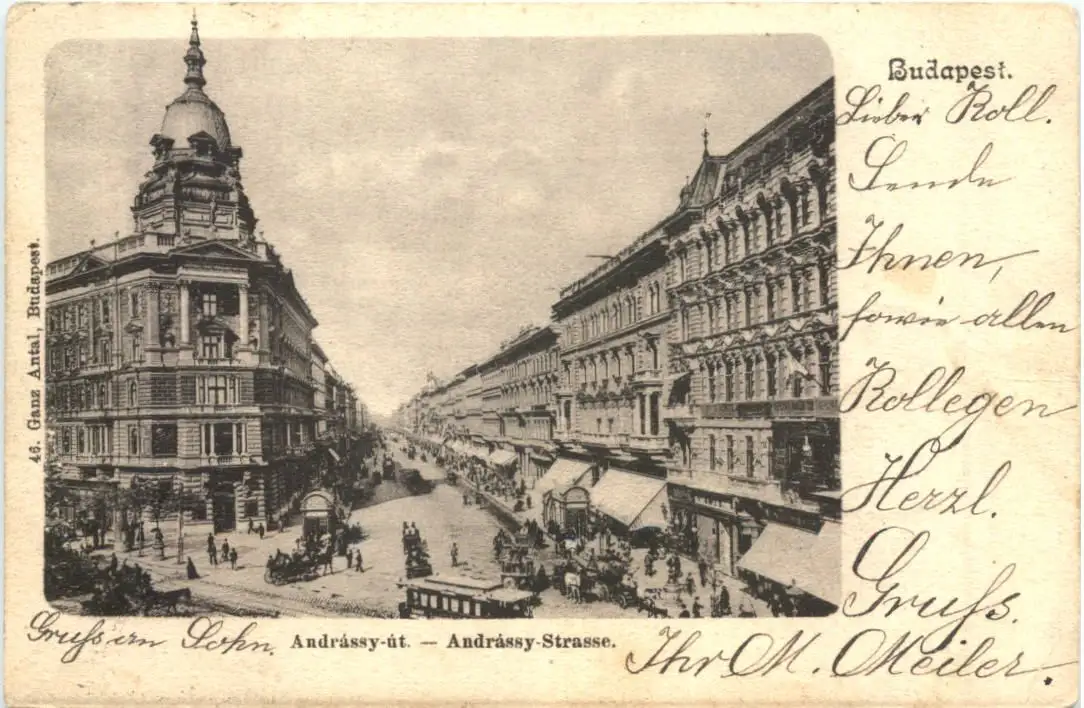 Budapest.
Lieber Koll.
Sende
Ihnen,
sowie allen
Kollegen
Herzl.
Gruss.
Ihr M. Meiler.
Gruss an Sohn.
Andrássy-út. — Andrássy-Strasse.
46. Ganz Antal, Budapest.